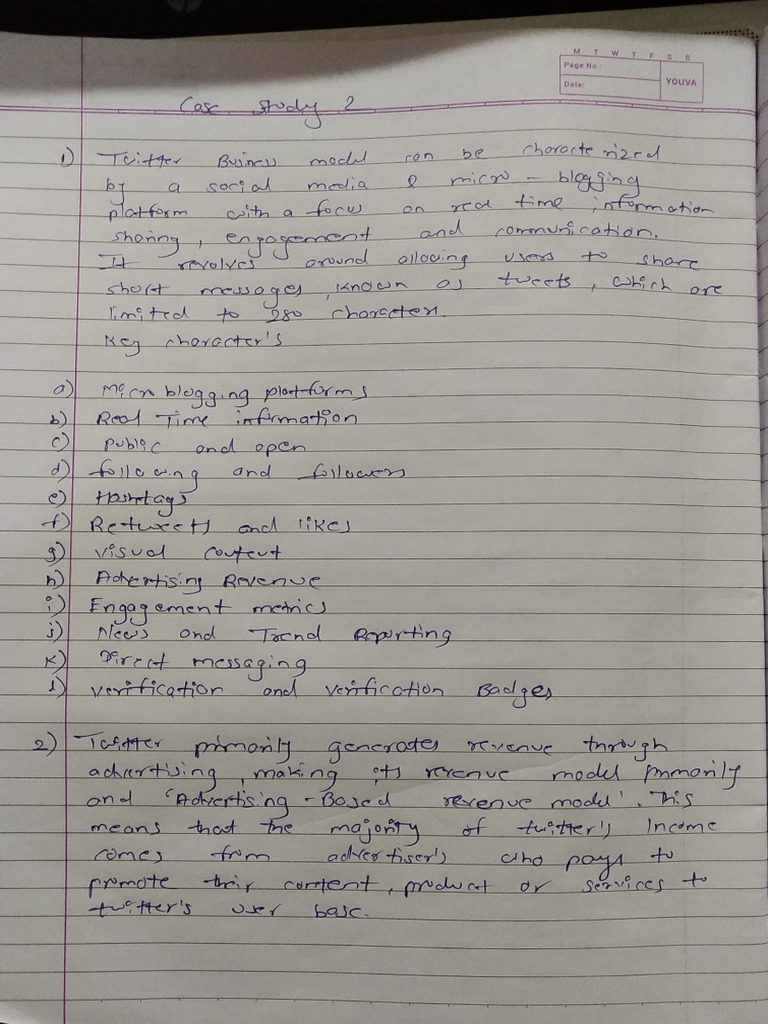 M T W T F S S
Page No.:
Date:
YOUVA
Case study 2
1) Twitter Business model can be characterized
by a social media & micro-blogging
platform with a focus on real time information
sharing, engagement and communication.
It revolves around allowing users to share
short messages, known as tweets, which are
limited to 280 characters.
Key character's
a) Micro blogging platforms
b) Real Time information
c) public and open
d) following and followers
e) Hashtags
f) Retweets and likes
g) visual content
h) Advertising Revenue
i) Engagement metrics
j) News and Trend Reporting
k) Direct messaging
l) verification and verification Badges
2) Twitter primarily generates revenue through
advertising, making its revenue model primarily
and 'Advertising-Based revenue model'. This
means that the majority of twitter's Income
comes from advertiser's who pays to
promote their content, product or services to
twitter's user base.